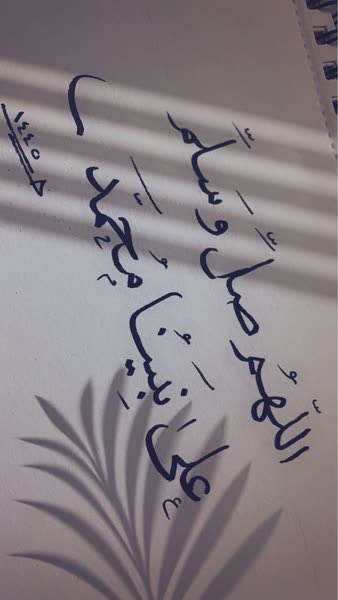 اللّٰهُمَّ صَلِّ وَسَلِّمْ
عَلَى نَبِيِّنَا مُحَمَّد
١٤٤٥ هـ